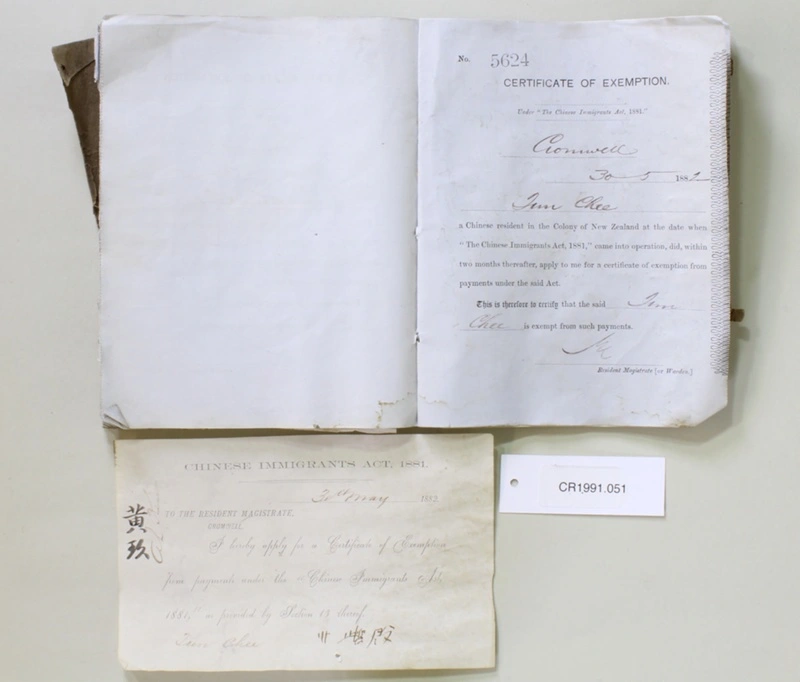 No. 5624
CERTIFICATE OF EXEMPTION.
Under "The Chinese Immigrants Act, 1881."
Cromwell
30 5 1882
Tum Chee
a Chinese resident in the Colony of New Zealand at the date when
"The Chinese Immigrants Act, 1881," came into operation, did, within
two months thereafter, apply to me for a certificate of exemption from
payments under the said Act.
This is therefore to certify that the said Tum
Chee is exempt from such payments.
Resident Magistrate [or Warden.]
CHINESE IMMIGRANTS ACT, 1881.
30th May 1882
TO THE RESIDENT MAGISTRATE,
CROMWELL.
I hereby apply for a Certificate of Exemption
from payments under the "Chinese Immigrants Act,
1881," as provided by Section 13 thereof.
Tum Chee
黄
玖
CR1991.051